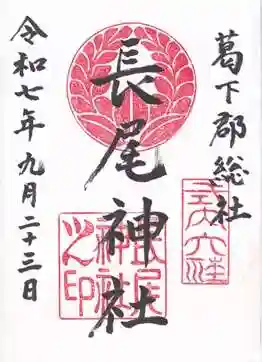 葛下郡総社
式内大社
長尾神社
長尾神社之印
令和七年九月二十三日